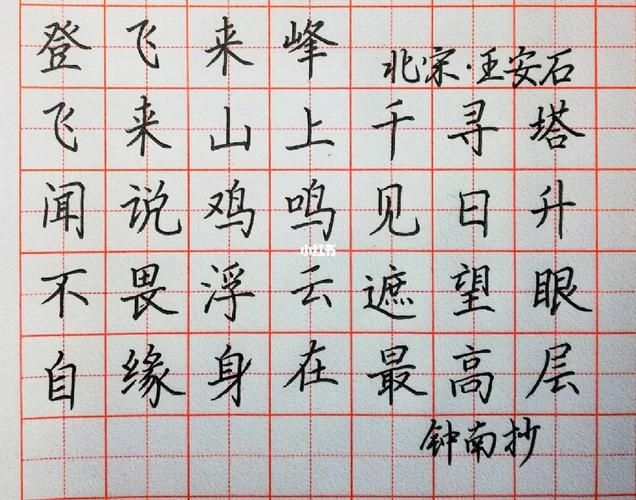 登飞来峰
北宋·王安石
飞来山上千寻塔
闻说鸡鸣见日升
小红书
不畏浮云遮望眼
自缘身在最高层
钟南抄